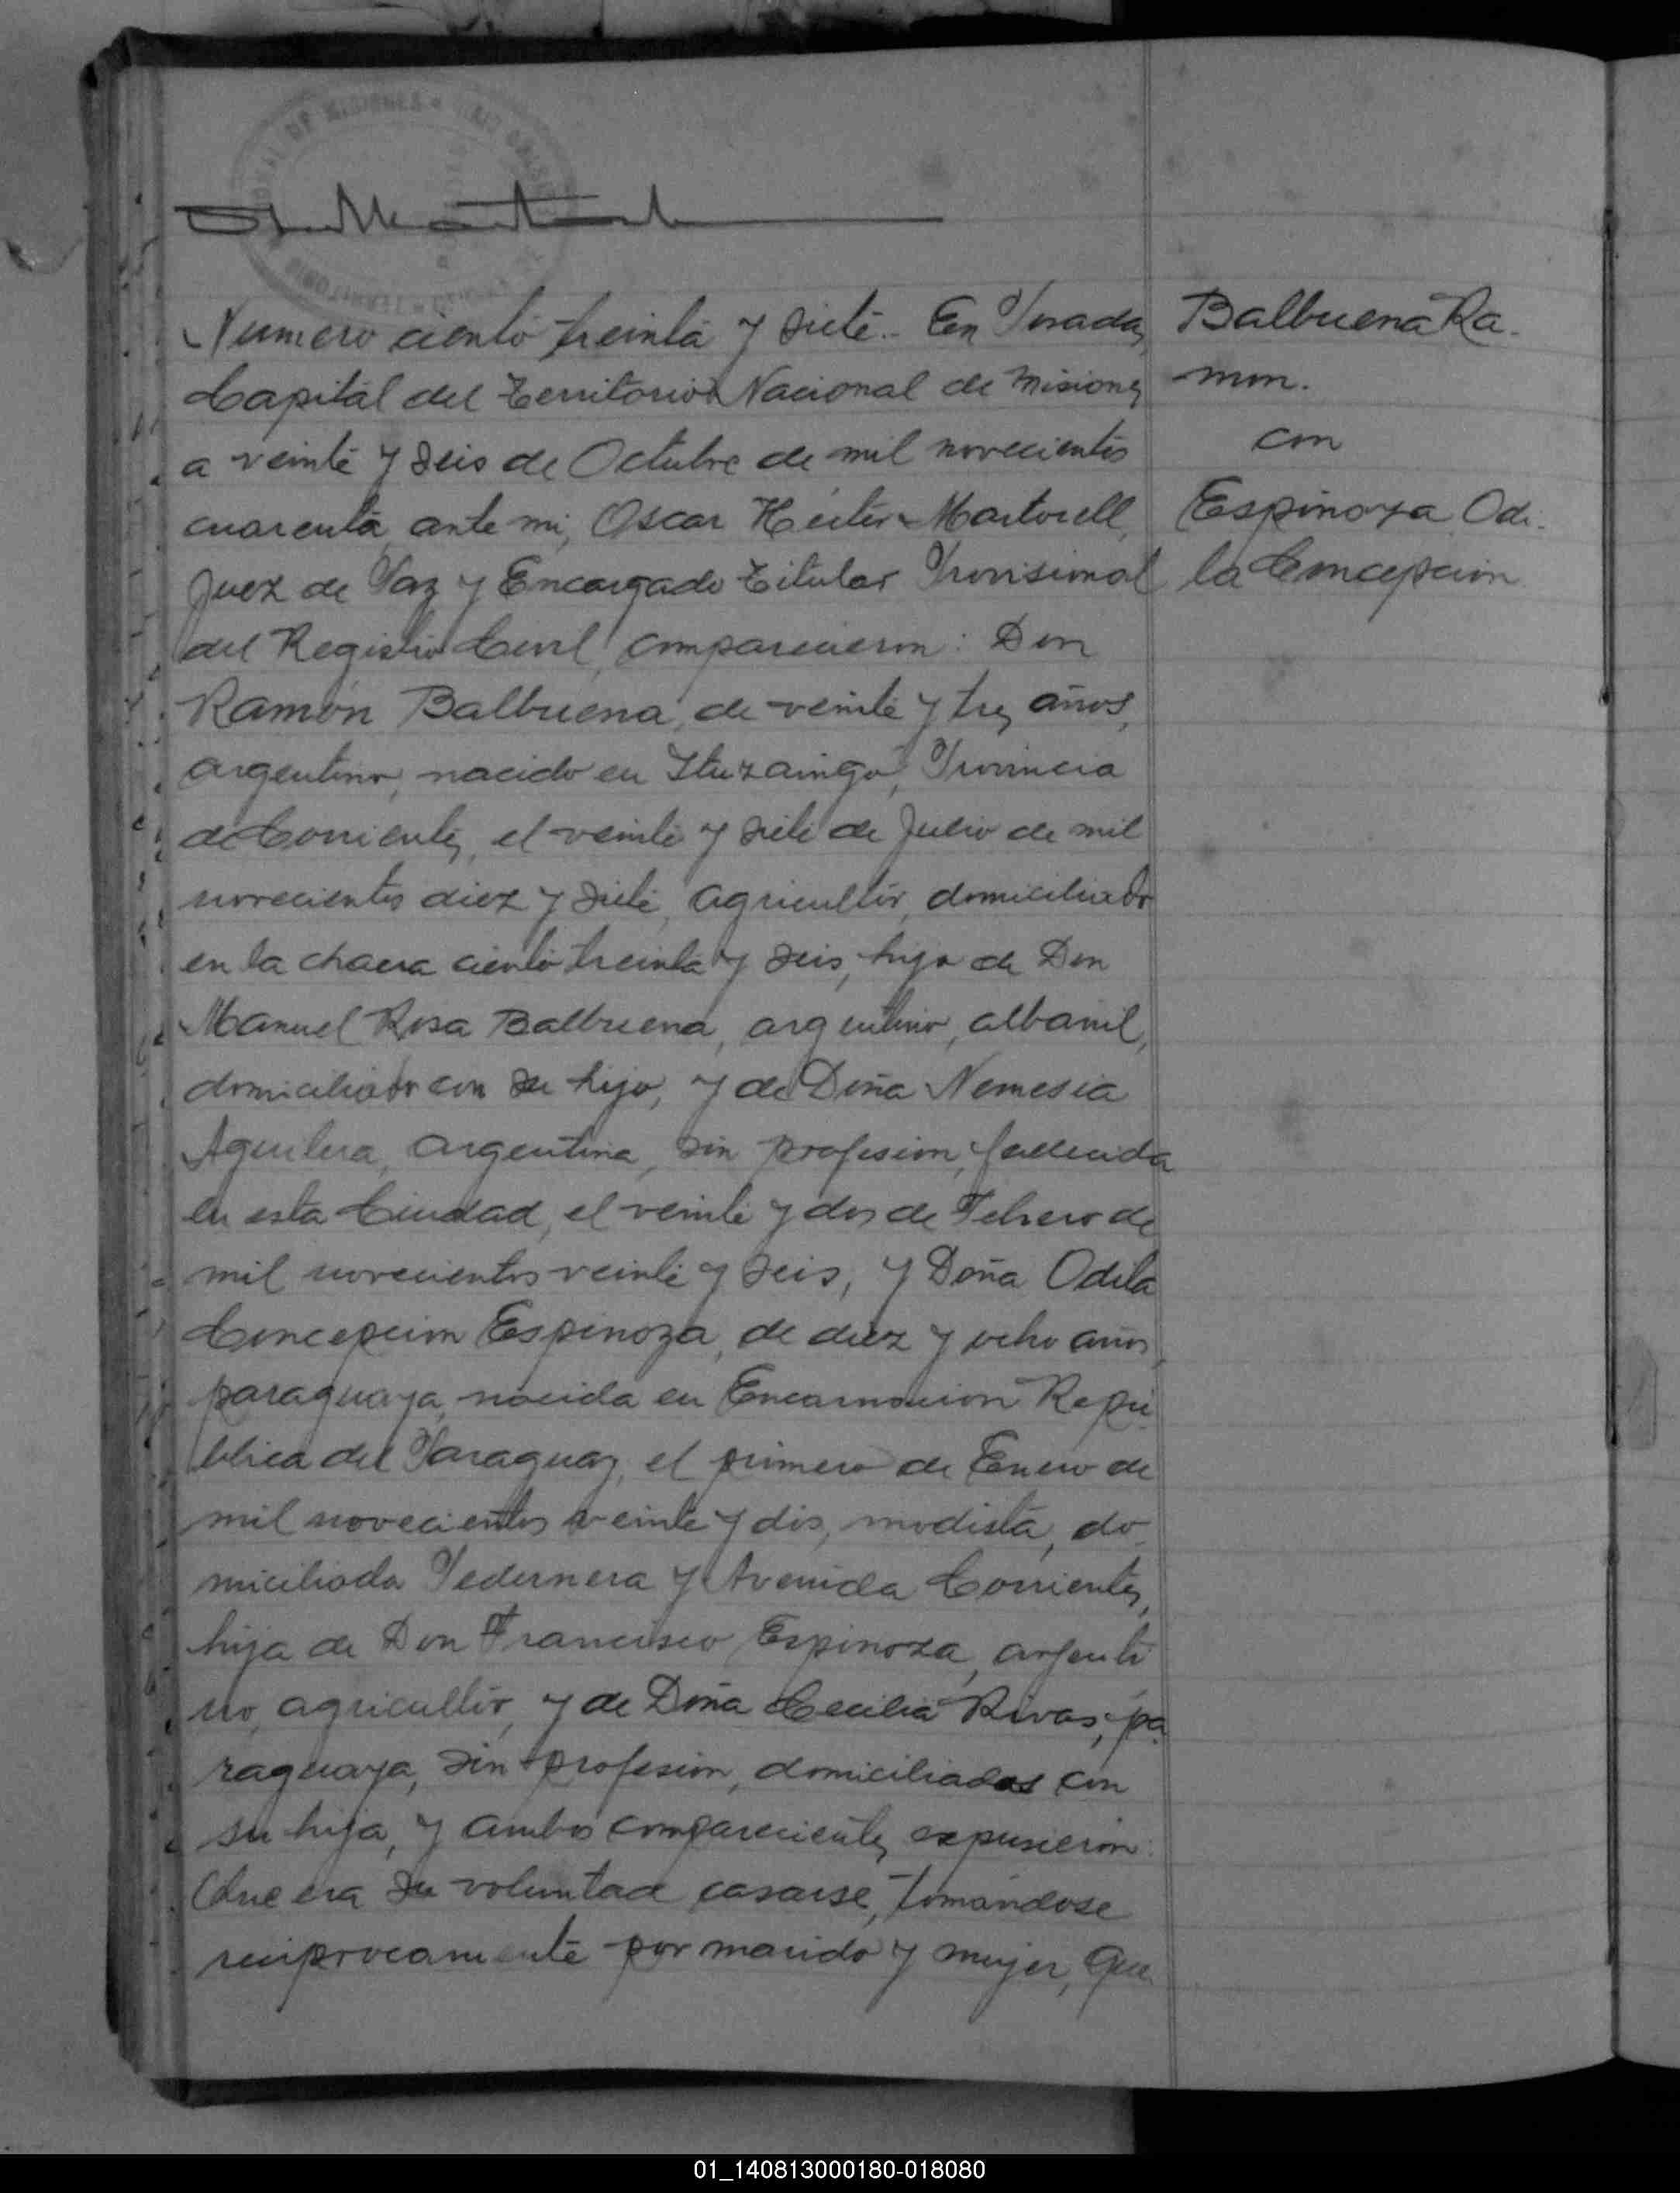 Numero ciento treinta y siete.- En Posadas,
Capital del Territorio Nacional de Misiones
a veinte y seis de Octubre de mil novecientos
cuarenta, ante mi, Oscar Héctor Martorell,
Juez de Paz y Encargado Titular Provisional
del Registro Civil, comparecieron: Don
Ramón Balbuena, de veinte y tres años,
argentino, nacido en Ituzaingó, Provincia
de Corrientes, el veinte y siete de Julio de mil
novecientos diez y siete, agricultor, domiciliado
en la chacra ciento treinta y seis, hijo de Don
Manuel Rosa Balbuena, argentino, albanil,
domiciliado con su hijo, y de Doña Nemesia
Aguilera, argentina, sin profesion, fallecida
en esta Ciudad, el veinte y dos de Febrero de
mil novecientos veinte y seis, y Doña Odila
Concepcion Espinoza, de diez y ocho años,
paraguaya, nacida en Encarnacion Repú
blica del Paraguay, el primero de Enero de
mil novecientos veinte y dos, modista, do-
miciliada Pedernera y Avenida Corrientes,
hija de Don Francisco Espinoza, argenti
no, agricultor, y de Doña Cecilia Rivas, pa
raguaya, sin profesion, domiciliados con
su hija, y ambos comparecientes expusieron:
Que era su voluntad casarse, tomándose
reciprocamente por marido y mujer, que
Balbuena Ra-
mon.
con
Espinoza Odi-
la Concepcion
01_140813000180-018080